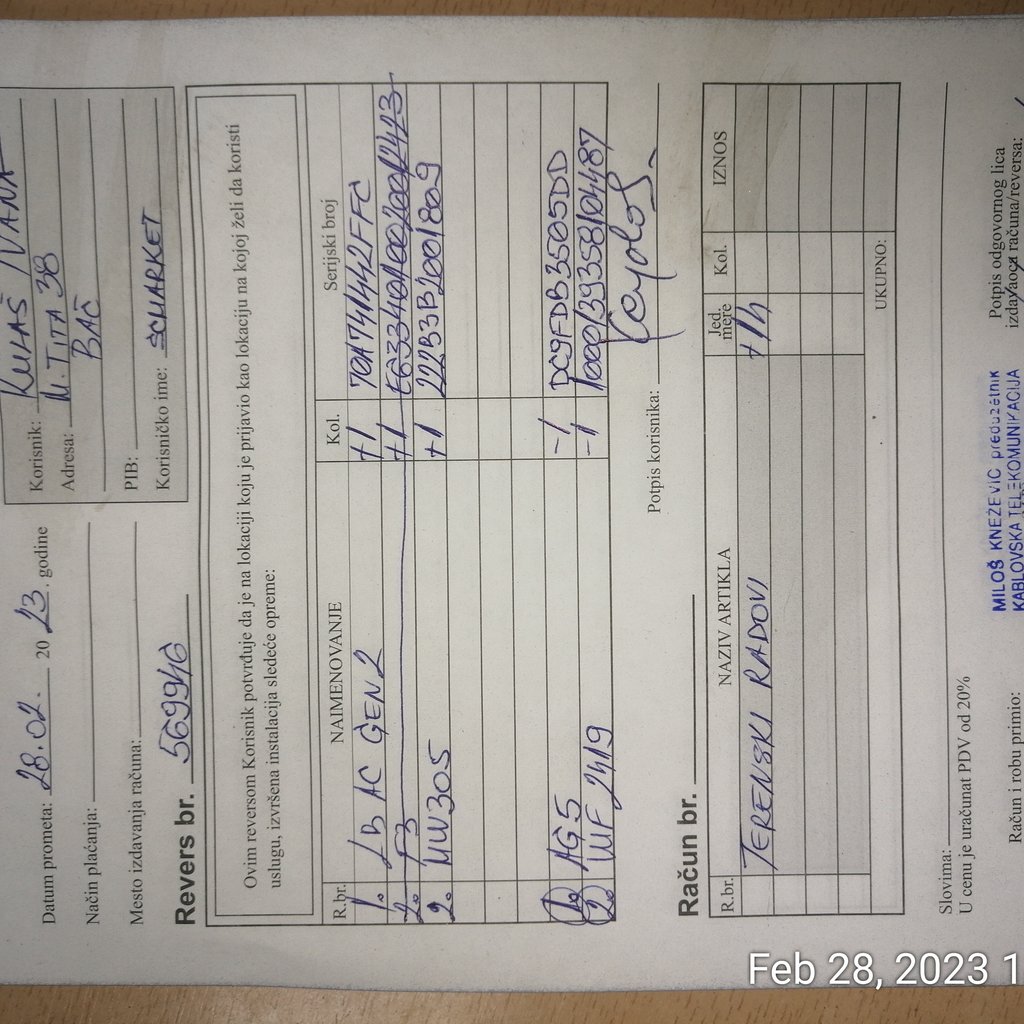 Datum prometa: 28.02. 2023. godine
Način plaćanja:
Mesto izdavanja računa:
Korisnik: KULAŠ IVANA
Adresa: M. TITA 38
BAČ
PIB:
Korisničko ime:
Revers br. 569946
Ovim reversom Korisnik potvrđuje da je na lokaciji koju je prijavio kao lokaciju na kojoj želi da koristi
uslugu, izvršena instalacija sledeće opreme:
R.br. NAIMENOVANJE Kol. Serijski broj
1. LB AC GEN2 +1 70A741442FFC
2. F3 +1
2. MW305 +1 222B3B2001809
1. AG5 -1 DC9FDB3505DD
2. WF 2419 -1
Potpis korisnika:
Račun br.
R.br. NAZIV ARTIKLA Jed. mere Kol. IZNOS
TERENSKI RADOVI +1h
UKUPNO:
Slovima:
U cenu je uračunat PDV od 20%
Račun i robu primio:
Potpis odgovornog lica
izdavaoca računa/reversa:
MILOŠ KNEŽEVIĆ preduzetnik
KABLOVSKA TELEKOMUNIKACIJA
Feb 28, 2023 1